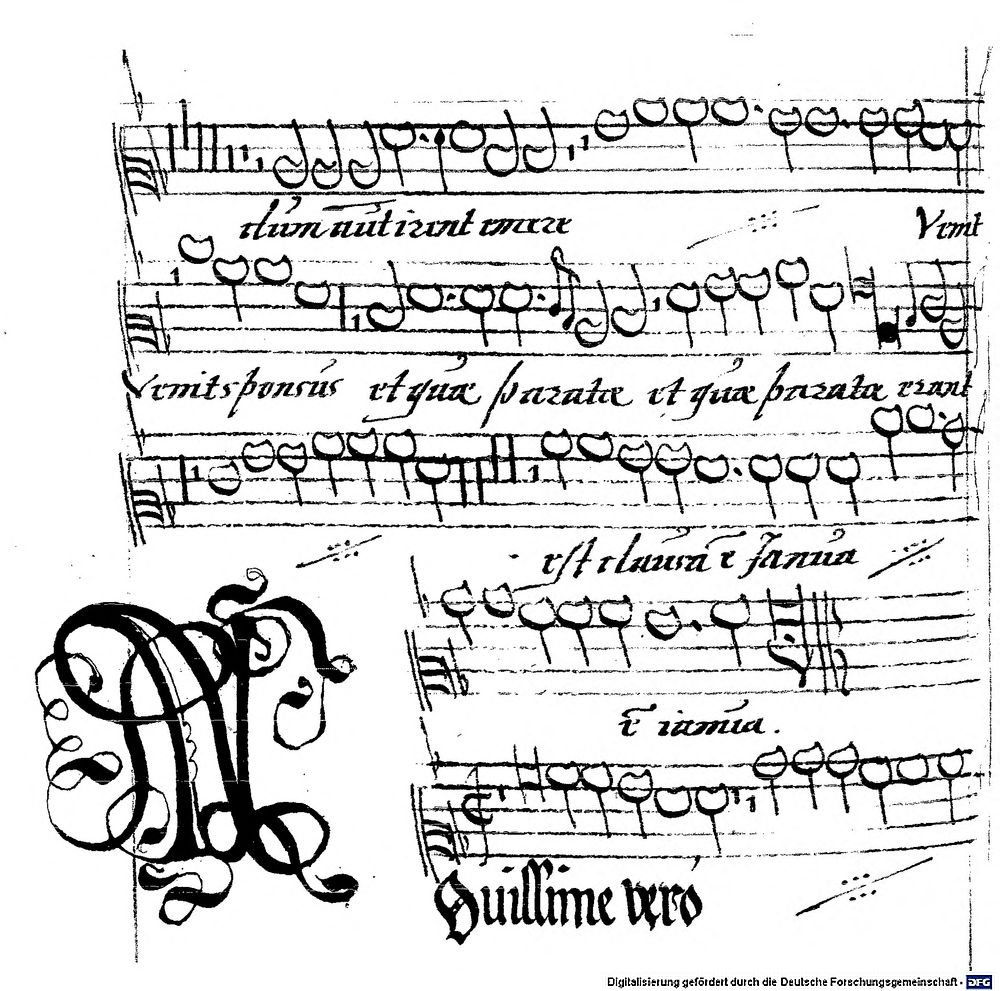 dum aūt irent emere Venit
Venit sponsus et quæ paratæ et quæ paratæ erant
est clausa ē Janua
ē ianua.
N
ouissime vero
Digitalisierung gefördert durch die Deutsche Forschungsgemeinschaft - DFG